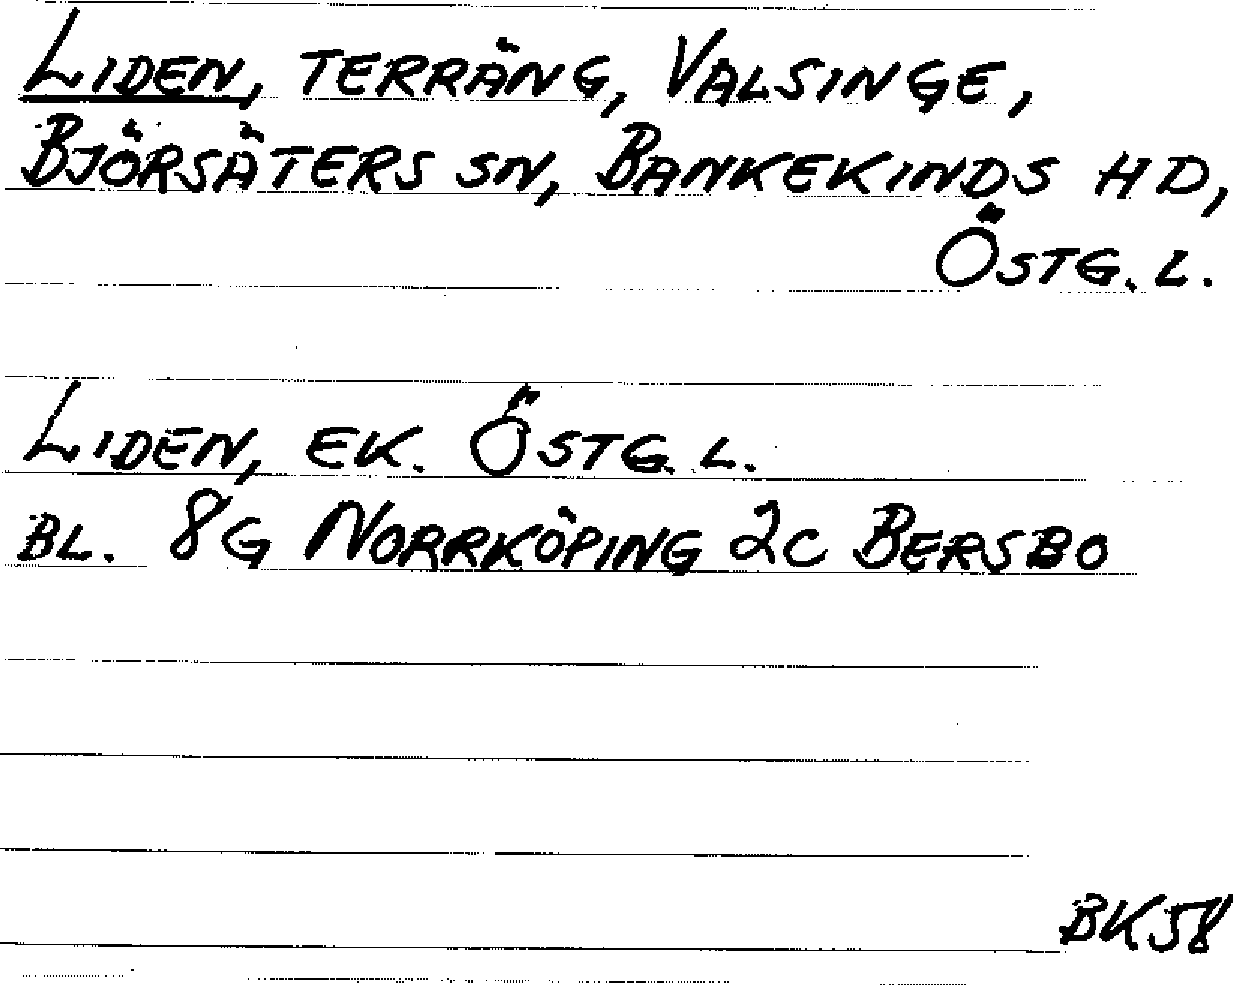 LIDEN, TERRÄNG, VALSINGE,
BJÖRSÄTERS SN, BANKEKINDS HD,
ÖSTG. L.
LIDEN, EK. ÖSTG. L.
BL. 8G NORRKÖPING 2C BERSBO
BK58